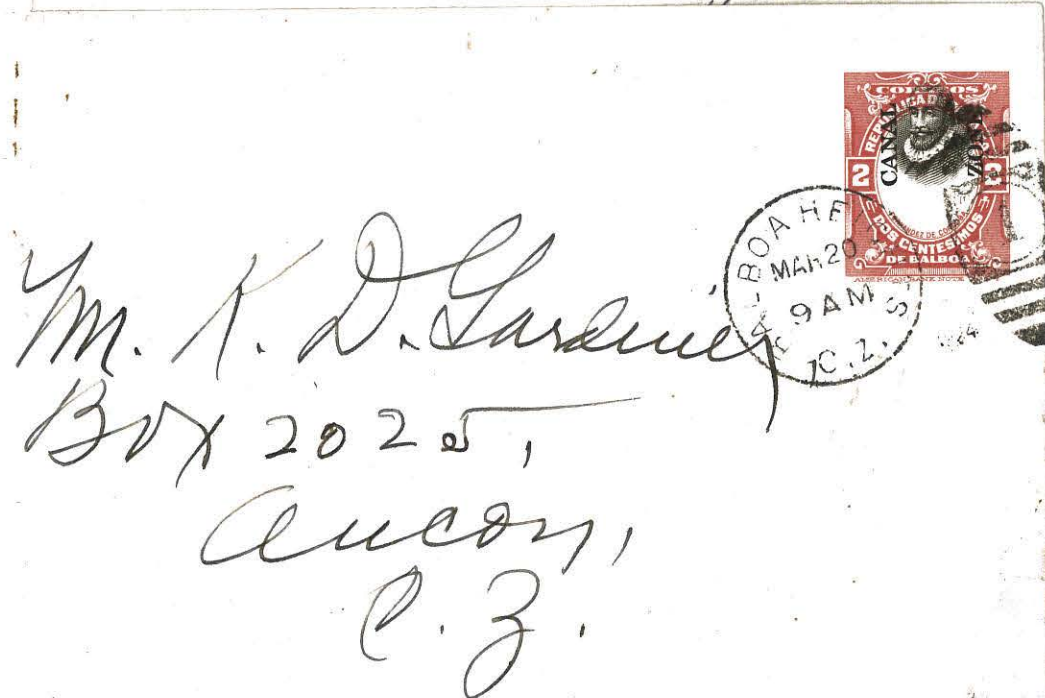 CORREOS
REPUBLICA DE
CANAL ZONE
2 2
DOS CENTESIMOS
DE BALBOA
AMERICAN BANK NOTE
BALBOA HEI
MAR 20
9 AM
C.Z.
Mr. K. D. Gardiner
Box 2025,
Ancon,
C. Z.